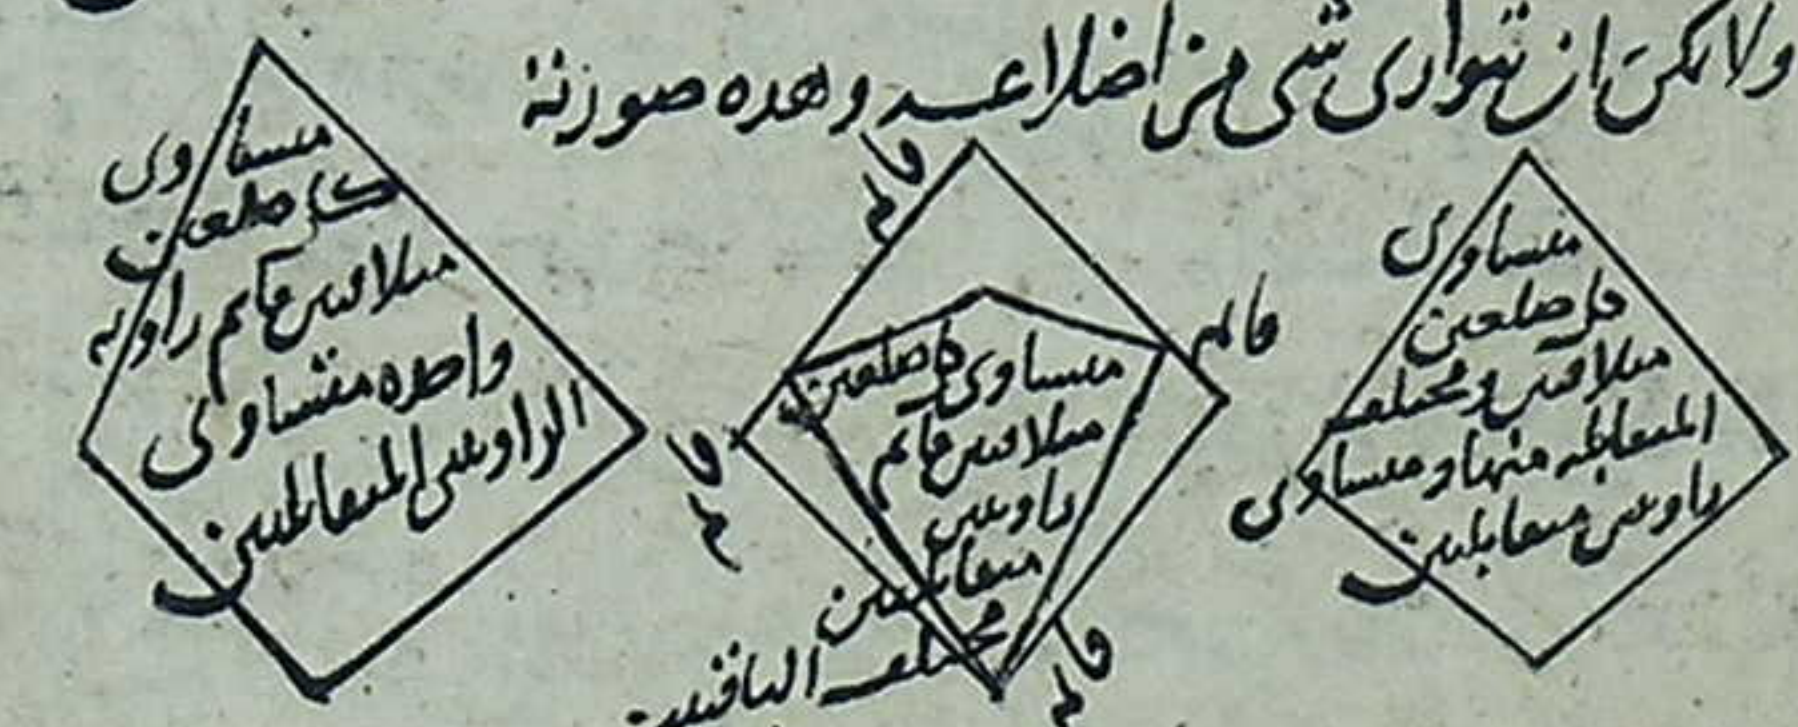 ولا يمكن ان يتوازى شى من اضلاعه وهده صورته
مساوى
كل ضلعين
متلاقيين ومختلف
المتقابله منها ومساوى
زاويتين متقابلتين
قايم
قايم
قايم
قايم
مساوى كل ضلعين
متلاقيين قايم
زاويتين
متقابلتين
مختلف الباقيتين
مساوى
كل ضلعين
متلاقيين قايم زاويه
واحده متساوى
الزاويتين المتقابلتين